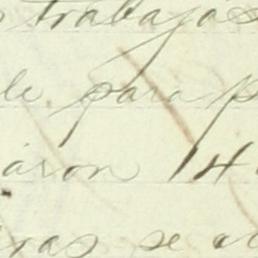 trabajas
le para p
aron 14
ras se a